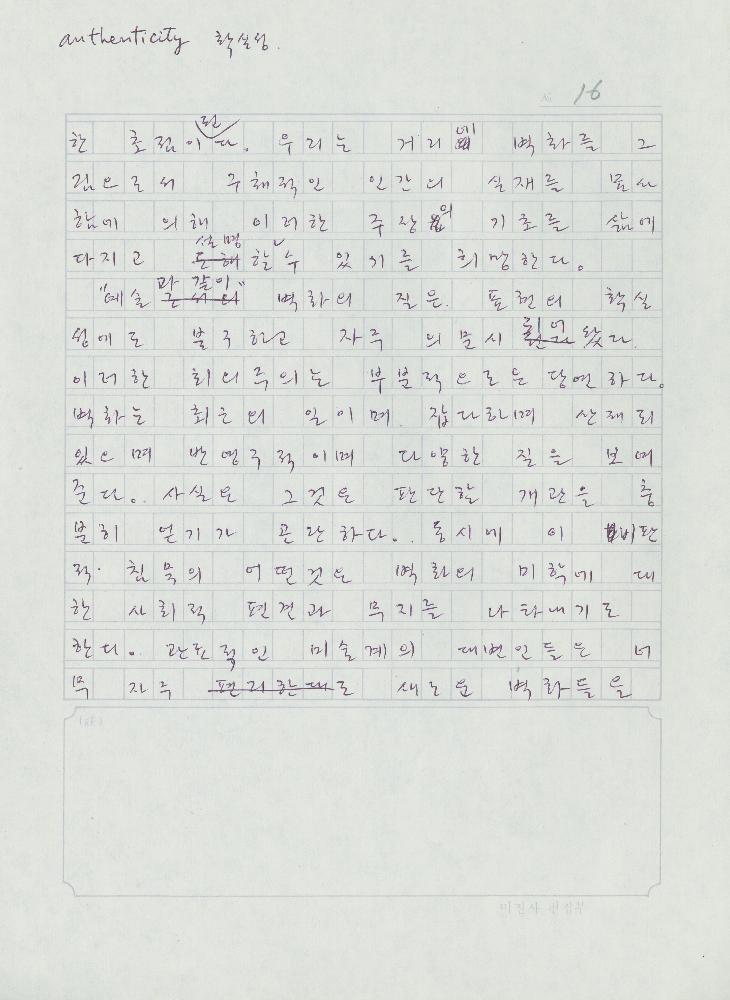 authenticity 확실성.
No. 16
된
한 초점이다. 우리는 거리에 벽화를 그
림으로서 구체적인 인간의 실재를 묘사
함에 의해 이러한 주장의 기초를 삶에
설명
다지고 할 수 있기를 희망한다.
과 같이"
"예술 벽화의 질은. 표현의 확실
성에도 불구하고 자주 의문시 되어 왔다.
이러한 회의주의는 부분적으로는 당연하다.
벽화는 최근의 일이며 잡다하며 산재되
있으며 반영구적이며 다양한 질을 보여
준다. 사실은 그것은 판단할 개관을 충
분히 얻기가 곤란하다. 동시에 이 비판
적· 침묵의 어떤것은 벽화의 미학에 대
한 사회적 편견과 무지를 나타내기도
한다. 관료적인 미술계의 대변인들은 너
무 자주 편리한대로 새로운 벽화들을
미진사 편집부